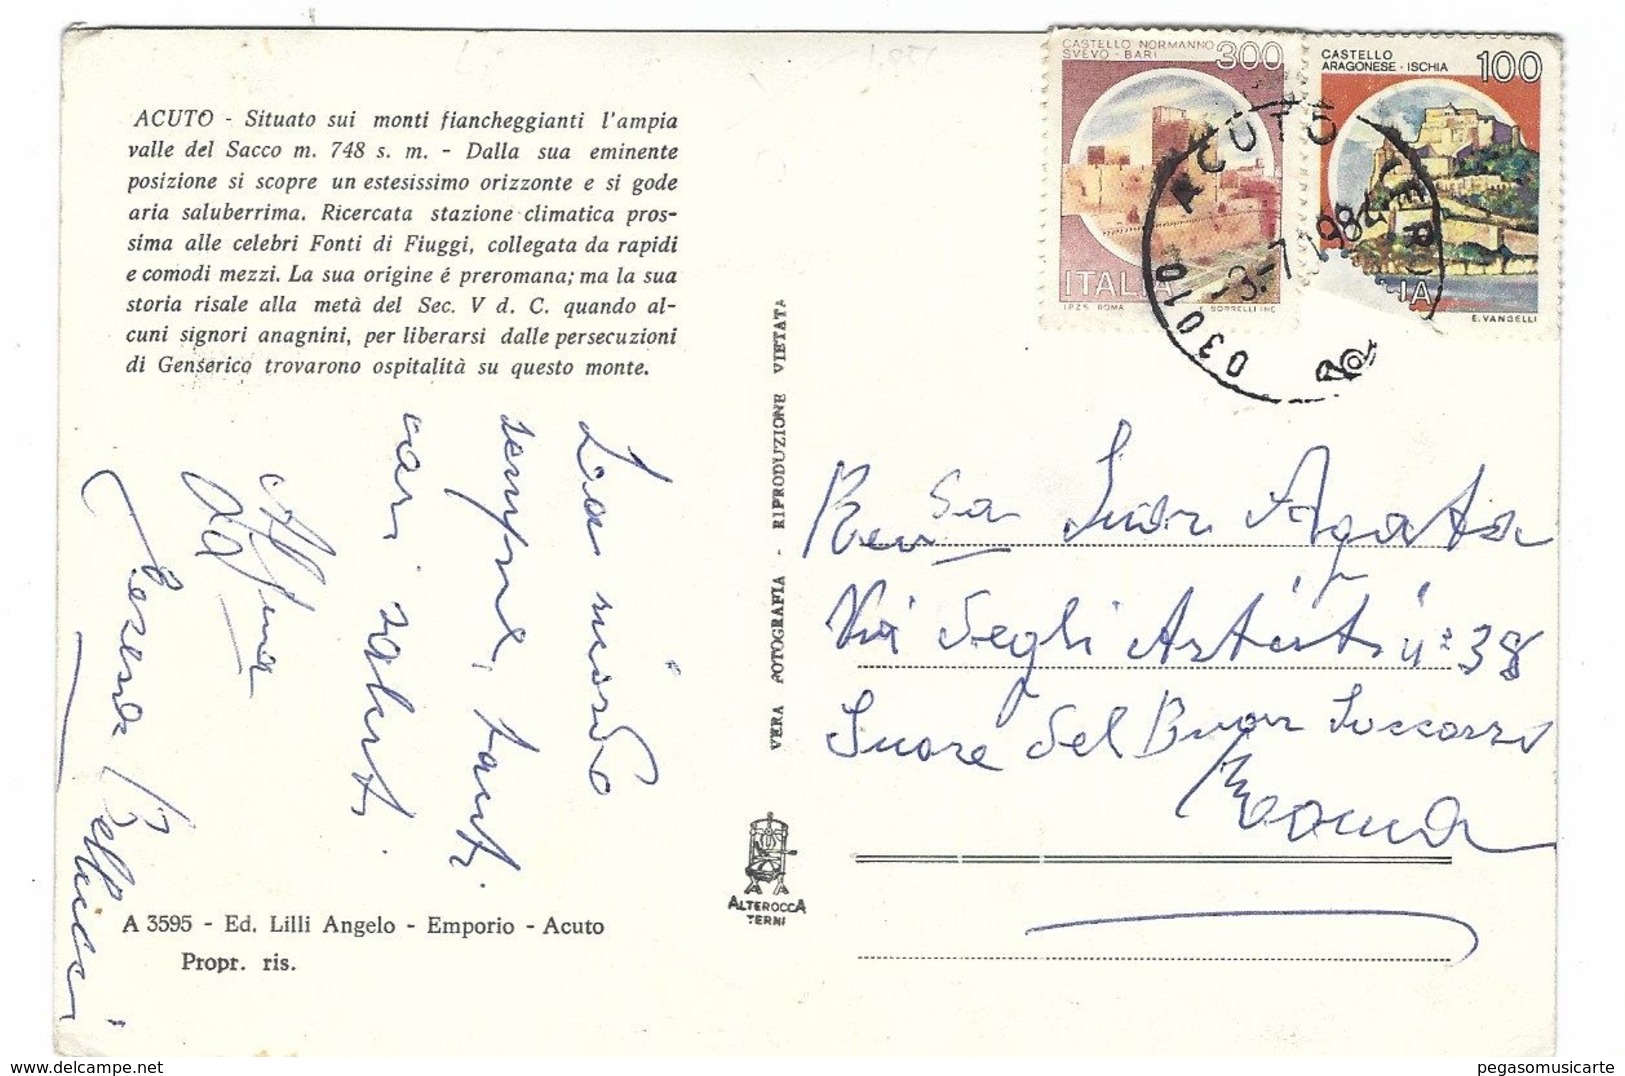 ACUTO - Situato sui monti fiancheggianti l'ampia
valle del Sacco m. 748 s. m. - Dalla sua eminente
posizione si scopre un estesissimo orizzonte e si gode
aria saluberrima. Ricercata stazione climatica pros-
sima alle celebri Fonti di Fiuggi, collegata da rapidi
e comodi mezzi. La sua origine é preromana; ma la sua
storia risale alla metà del Sec. V d. C. quando al-
cuni signori anagnini, per liberarsi dalle persecuzioni
di Genserico trovarono ospitalità su questo monte.
La ricordo
sempre, tanti
cari saluti.
Aff.ma
A 3595 - Ed. Lilli Angelo - Emporio - Acuto
Propr. ris.
VERA FOTOGRAFIA - RIPRODUZIONE VIETATA
ALTEROCCA
TERNI
CASTELLO NORMANNO
SVEVO - BARI
300
ITALIA
I.P.Z.S. ROMA
F. BORRELLI INC.
CASTELLO
ARAGONESE - ISCHIA
100
E. VANGELLI
03010 ACUTO
-3.-7.1984
Rev sa Suor Agata
Via degli Artisti nº 38
Suore del Buon Soccorso
Roma
pegasomusicarte
www.delcampe.net